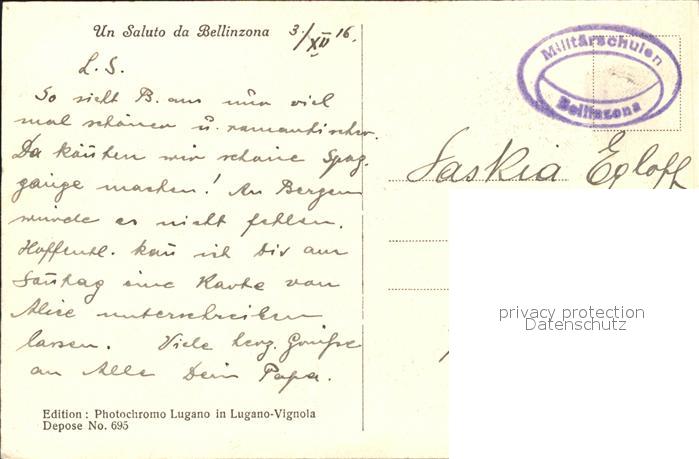 Un Saluto da Bellinzona 3./XII 16.
L. S.
So sieht B. aus nur viel
mal schöner u. romantischer.
Da könten wir schöne Spaz-
gänge machen! An Bergen
würde es nicht fehlen.
Hoffentl. kan ich Dir am
Sontag eine Karte von
Alice unterschreiben
lassen. Viele herz. Grüsse
an Alle Dein Papa.
Edition: Photochromo Lugano in Lugano-Vignola
Depose No. 695
Militärschulen
Bellinzona
Saskia Egloff
privacy protection
Datenschutz